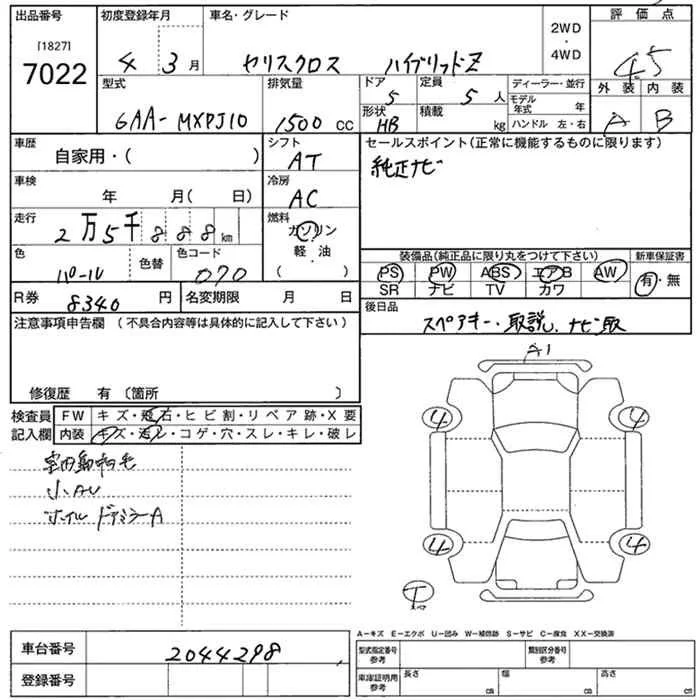 出品番号 初度登録年月 車名・グレード 評価点
[1827]
7022
4 3月 ヤリスクロス ハイブリッドZ
2WD
・
4WD
4.5
外装 内装
A B
型式 排気量 ドア 定員 ディーラー・並行
6AA-MXPJ10 1500 CC 5 5人
形状 積載 モデル年式 年
HB kg ハンドル 左・右
車歴 シフト セールスポイント(正常に機能するものに限ります)
自家用・( ) AT 純正ナビ
車検 冷房
年 月( 日) AC
走行 燃料
2万5千888km ガソリン
軽油
色 色替 色コード
パール 070
装備品(純正品に限り丸をつけて下さい) 新車保証書
PS PW ABS エアB AW 有・無
SR ナビ TV カワ
R券 8340円 名変期限 月 日
後日品 スペアキー・取説、ナビ取
注意事項申告欄 (不具合内容等は具体的に記入して下さい)
修復歴 有(箇所 )
A1
検査員 FW キズ・飛石・ヒビ割・リペア跡・X要
記入欄 内装 キズ・汚レ・コゲ・穴・スレ・キレ・破レ
小AU
ホイル ドアミラーA
4 4
4 4
A−キズ E−エクボ U−凹み W−補修跡 S−サビ C−腐食 XX−交換済
車台番号 2044298
登録番号
型式指定番号 参考 類別区分番号 参考
車庫証明用 参考 長さ cm 幅 cm 高さ cm